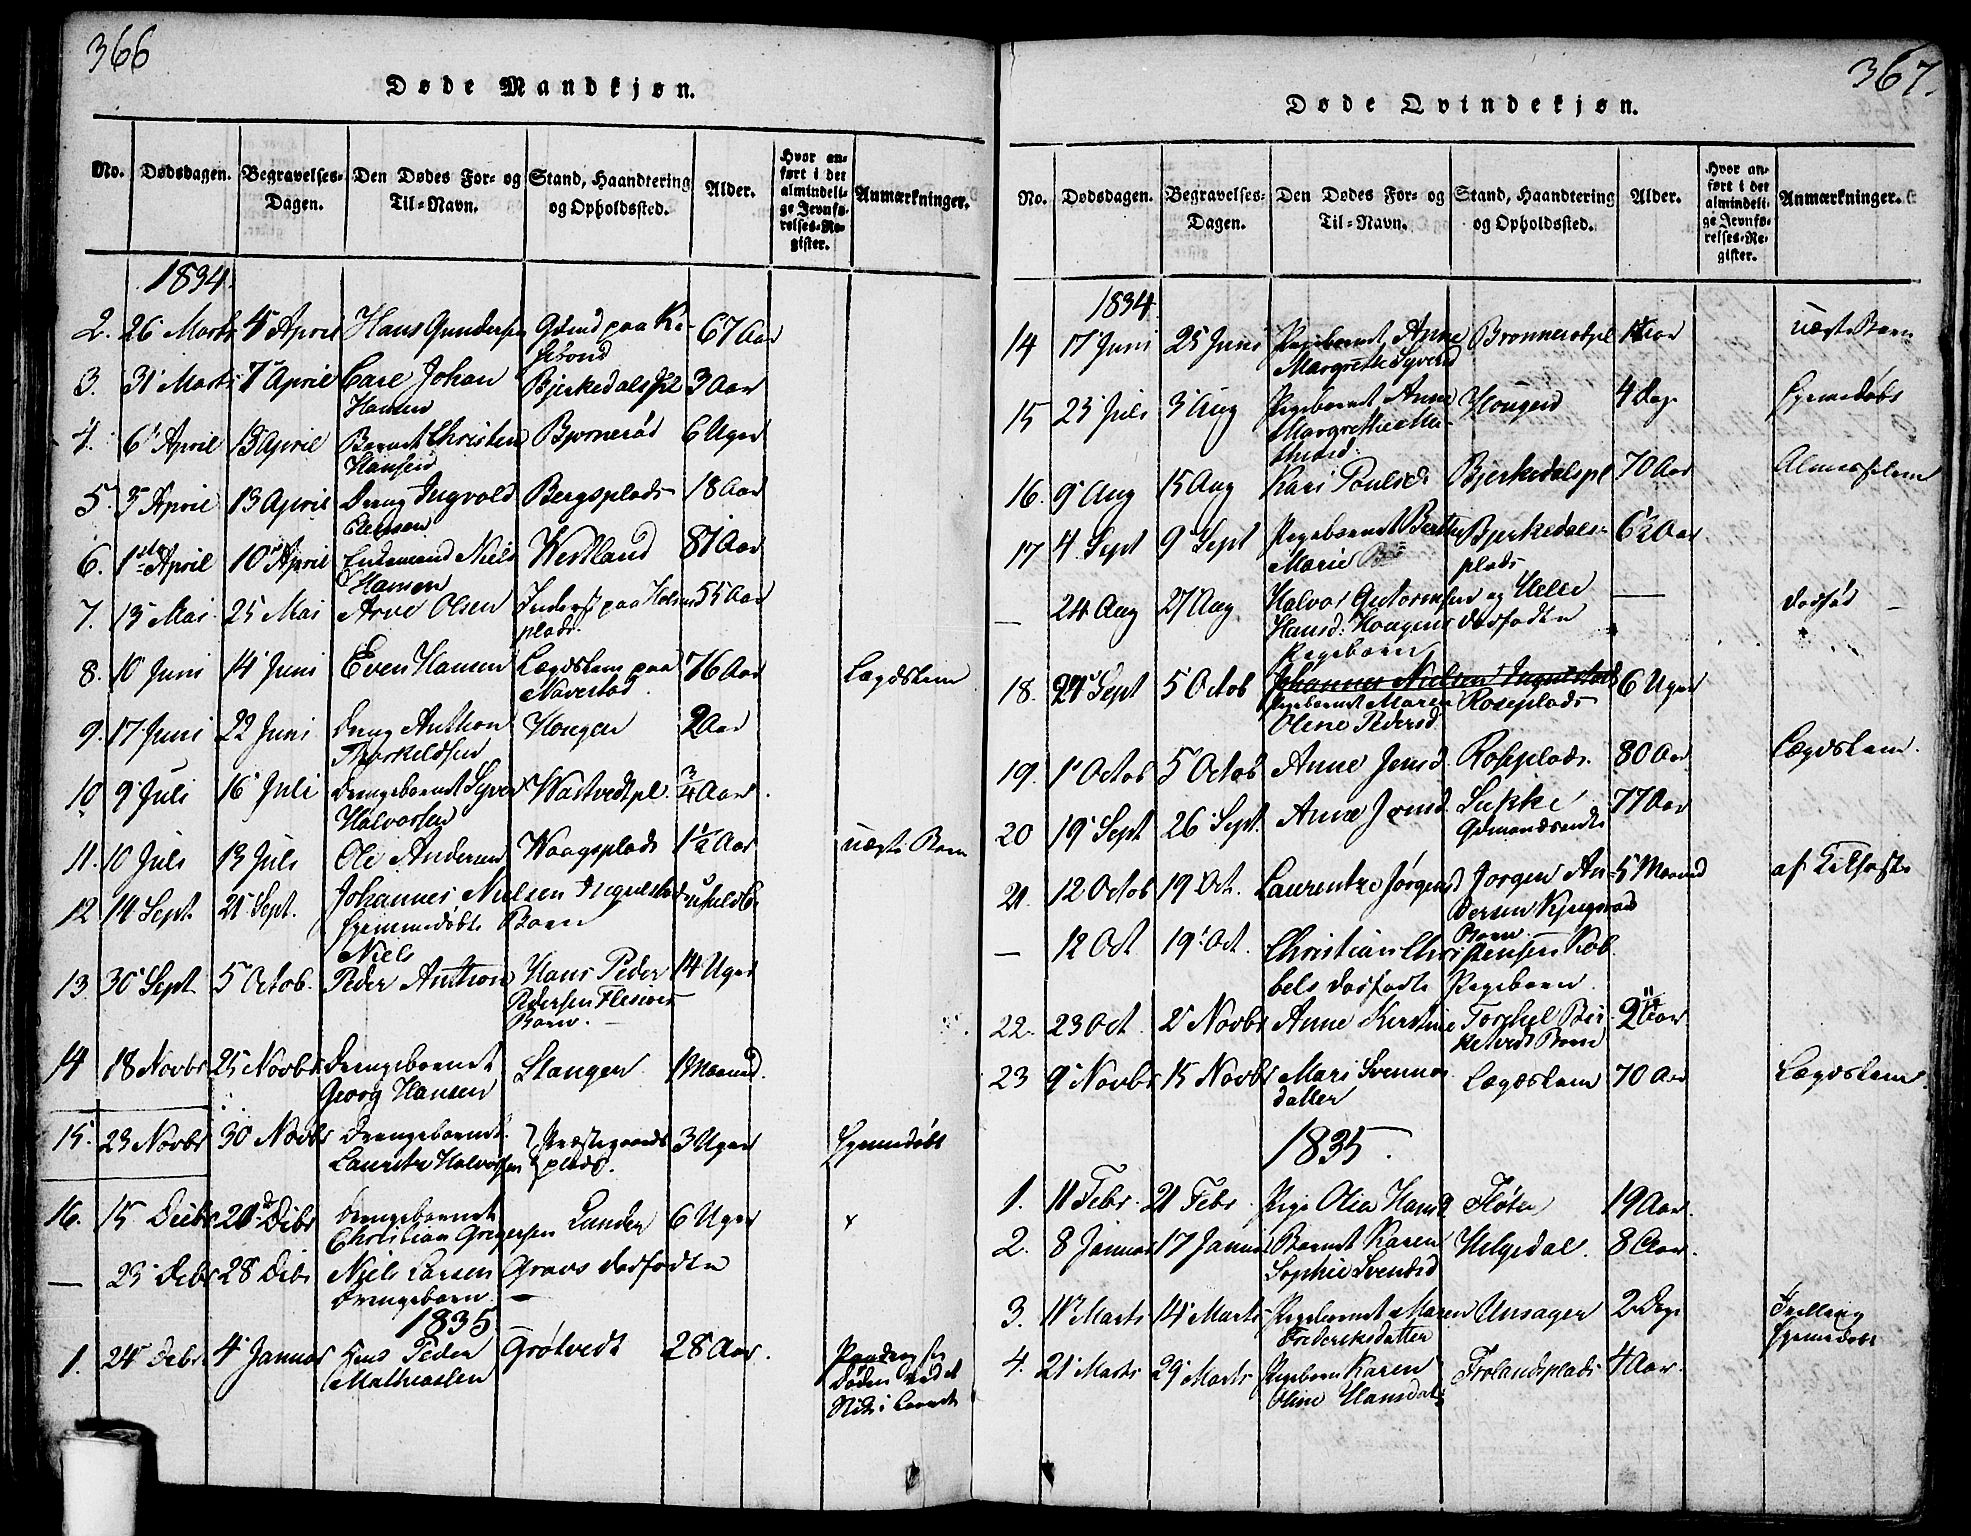 366
Døde Mandkjøn.
No. Dødsdagen. Begravelses-Dagen. Den Dødes For- og Til-Navn. Stand, Haandtering og Opholdssted. Alder. Hvor anført i det almindelige Jevnførelses-Register. Anmærkninger.
1834.
2. 26 Marts 4 April Hans Gundersen Gdmd paa 67 Aar
3. 31 Marts 7 April Carl Johan Bjerkedalspl 3 Aar
Hansen
4. 6 April 13 April Barnet Christen Bjørnerød 6 Uger
Hansen
5. 3 April 13 April Dreng Ingvold Bergsplads 18 Aar
6. 1ste April 10 April Enkemand Niels Westland 81 Aar
Hansen
7. 13 Mai 25 Mai Arve Olsen Inderst paa 55 Aar
plads.
8. 10 Juni 14 Juni Even Hansen Lægdslem paa 76 Aar Lægdslem
Navestad.
9. 17 Juni 22 Juni Dreng Anthon Hougen 2 Aar
Thorkeldsen
10 9 Juli 16 Juli Drengebarnet Syver Wastvedtpl. 3/4 Aar.
Halvorsen
11. 10 Juli 13 Juli Ole Andersen Waagsplads 1 1/2 Aar uægte Barn
12 19 Sept. 21 Sept. Johannes Nielsen
hjemmedøbte Barn
Niels
13. 30 Sept 5 Octob. Peder Anthon Hans Peder 14 Uger
Pedersen
Barn.
14 18 Novbr 25 Novbr Drengebarnet Stangen 1 Maaned.
Georg Hansen
15. 23 Novbr 30 Novbr Drengebarnet Præstegaards 3 Uger Hjemmedøbt
Lauritz Halvorsen plads.
16. 15 Debr 20 Debr Drengebarnet Lunden 6 Uger
Christian Gregersen
— 23 Debr 28 Debr Niels Larsen Gravs dødfødte
Drengebarn.
1835
1. 24 Debr 4 Januar Peder Grøtvedt 28 Aar.
Mathiassen
367.
Døde Qvindekjøn.
No. Dødsdagen. Begravelses-Dagen. Den Dødes For- og Til-Navn. Stand, Haandtering og Opholdssted. Alder. Hvor anført i det almindelige Jevnførelses-Register. Anmærkninger.
1834
14 17 Juni 25 Juni Pigebarnet Anne uægte Barn
Margrethe Syversd
15 23 Juli 3 Aug Pigebarnet Anne Hougen 4 Dage Hjemmedøbt
Margrethe
16. 9 Aug 15 Aug Kari Poulsd Bjerkedalspl 70 Aar Almisselem
17 4 Sept 9 Sept Pigebarnet Berthe Bjerkedals- 6 1/2 Aar
Marie plads
— 24 Aug 27 Aug Halvor Guttormsen og Helle — dødfød
Hansd: Hougens dødfødte
Pigebarn
18. 27 Sept 5 Octob Johannes Nielsen 6 Uger
Pigebarnet Maren Roseplads
Oline Pedersd
19. 1 Octob 5 Octob Anne Jensd Roseplads. 80 Aar Lægdslem.
20 19 Sept 26 Sept. Anne Jensd. Sukke 77 Aar
Gdmandsenke
21. 12 Octob 19 Oct. Laurentze Jørgensd Jørgen An- 5 Maaned
dersen
Barn
— 12 Oct 19 Oct. Christian Christensen Kob
bels dødfødte Pigebarn.
22. 23 Oct. 2 Novbr Anne Kirstine Torkel
Barn
23 9 Novbr 15 Novbr Mari Svennes Lægdslem 70 Aar Lægdslem.
datter
1835.
1. 11 Febr. 21 Febr. Pige Olia Hansd Fløten 19 Aar.
2. 8 Januar 17 Januar Barnet Karen Helgedal. 8 Aar.
Sophie Svendsd
3. 11 Marts 14 Marts Pigebarnet Maren Unsager 2 Dage Tvilling
Frederiksdatter Hjemmedøbt
4. 21 Marts 29 Marts Pigebarn Karen Frolandsplads 4 Aar.
Oline Hansdat.